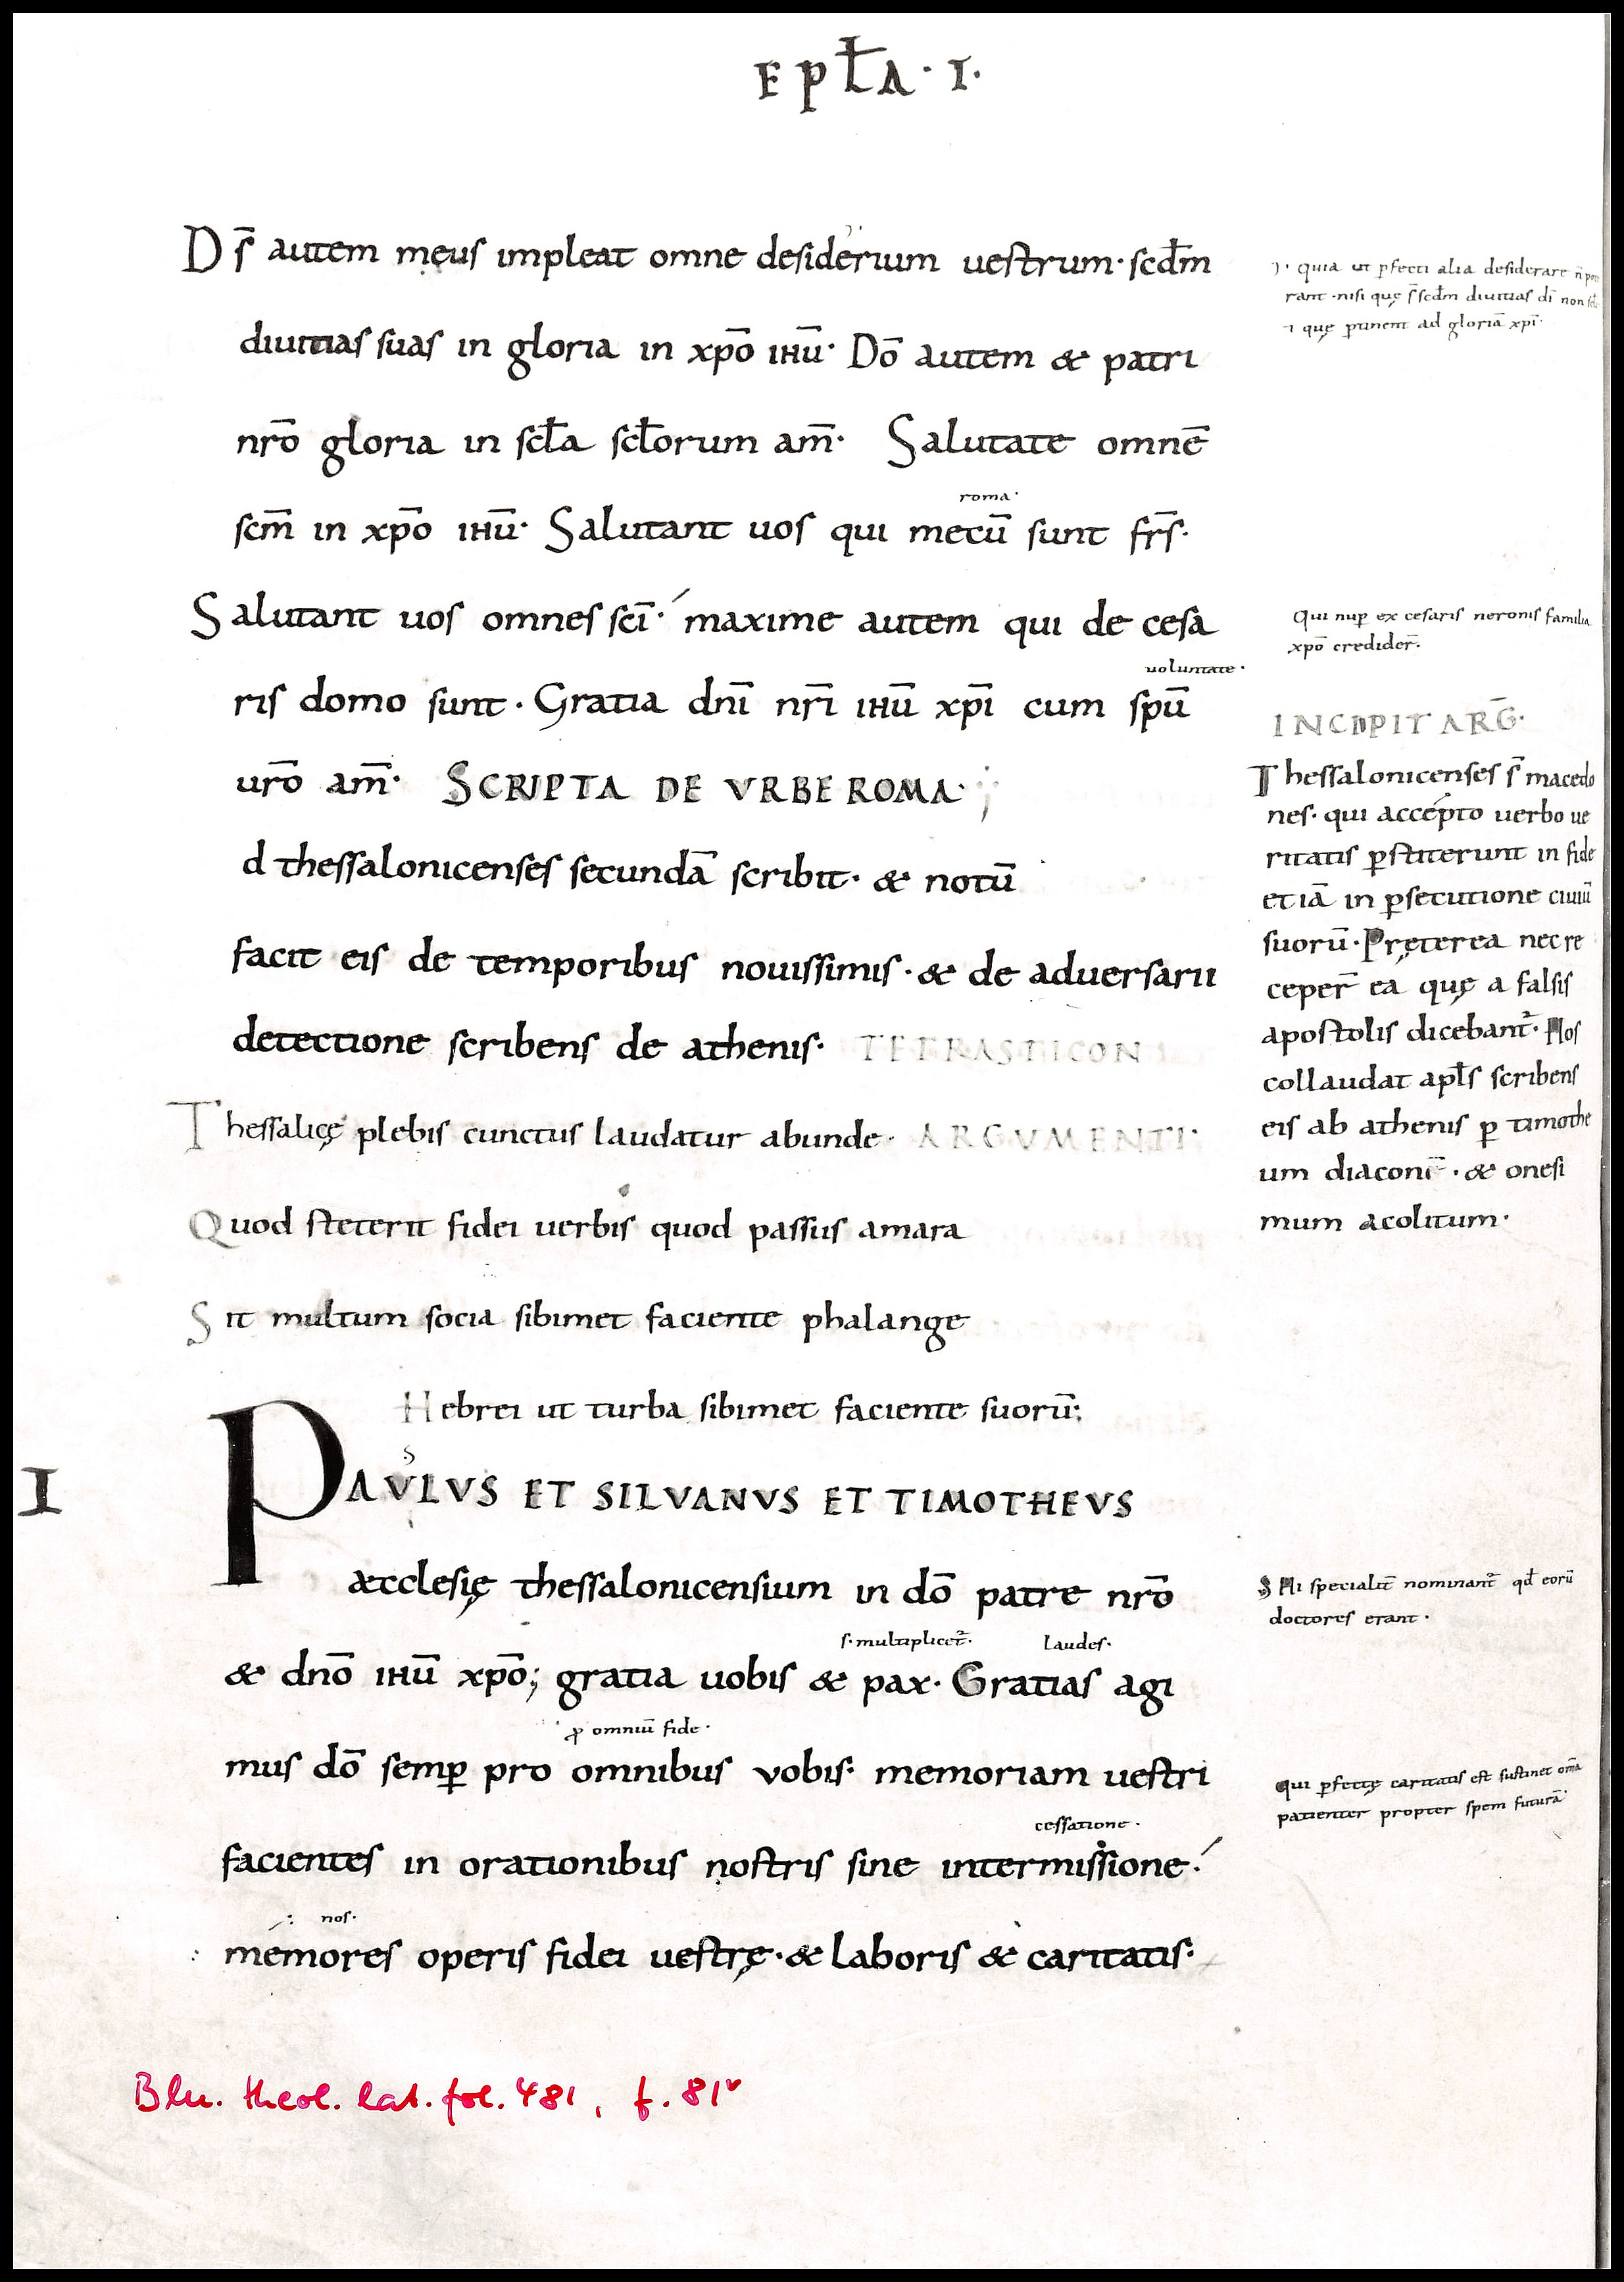 EPL̄A · I ·
Ds̄ autem meus impleat omne desiderium uestrum· scdm̄
diuitias suas in gloria in xp̄o ihū· Dō autem & patri
nr̄o gloria in scl̄a scl̄orum am̄· Salutate omnē
roma·
scm̄ in xp̄o ihū· Salutant uos qui mecū sunt fr̄s·
Salutant uos omnes sc̄i· maxime autem qui de cesa
uoluntate·
ris domo sunt· Gratia dn̄i nr̄i ihū xp̄i cum spū
ur̄o am̄· SCRIPTA DE VRBE ROMA·
d thessalonicenses secundā scribit· & notū
facit eis de temporibus nouissimis· & de aduersarii
detectione scribens de athenis· TETRASTICON
Thessalicę plebis cunctus laudatur abunde· ARGVMENTI·
Quod steterit fidei uerbis quod passus amara
Sit multum socia sibimet faciente phalange
Hebrei ut turba sibimet faciente suorū;
I
S
PAVLVS ET SILVANVS ET TIMOTHEVS
æcclesię thessalonicensium in dō patre nr̄o
s· multiplicet̄· laudes·
& dn̄o ihū xp̄o; gratia uobis & pax· Gratias agi
ꝓ omniū fide·
mus dō semꝑ pro omnibus vobis· memoriam uestri
cessatione·
facientes in orationibus nostris sine intermissione·
nos·
memores operis fidei uestrę· & laboris & caritatis·
quia ut ꝑfecti alia desiderare
rant· nisi quę s̄ scdm̄ diuitias dī non
quę ꝑtinent ad gloriā xp̄i·
Qui nuꝑ ex cesaris neronis familia
xp̄o credider̄·
INCIPIT ARḠ·
Thessalonicenses s̄ macedo
nes· qui accepto uerbo ue
ritatis ꝑstiterunt in fide
etiā in ꝑsecutione ciuiū
suorū· Pręterea nec re
ceper̄ ea quę a falsis
apostolis dicebant̄· Hos
collaudat apl̄s scribens
eis ab athenis ꝑ timothe
um diaconū· & onesi
mum acolitum·
S Hi specialit̄ nominant̄ qđ eorū
doctores erant·
Qui ꝑfectę caritatis est sustinet om̄a
patienter propter spem futurā·
Bln. theol. lat. fol. 481, f. 81ᵛ